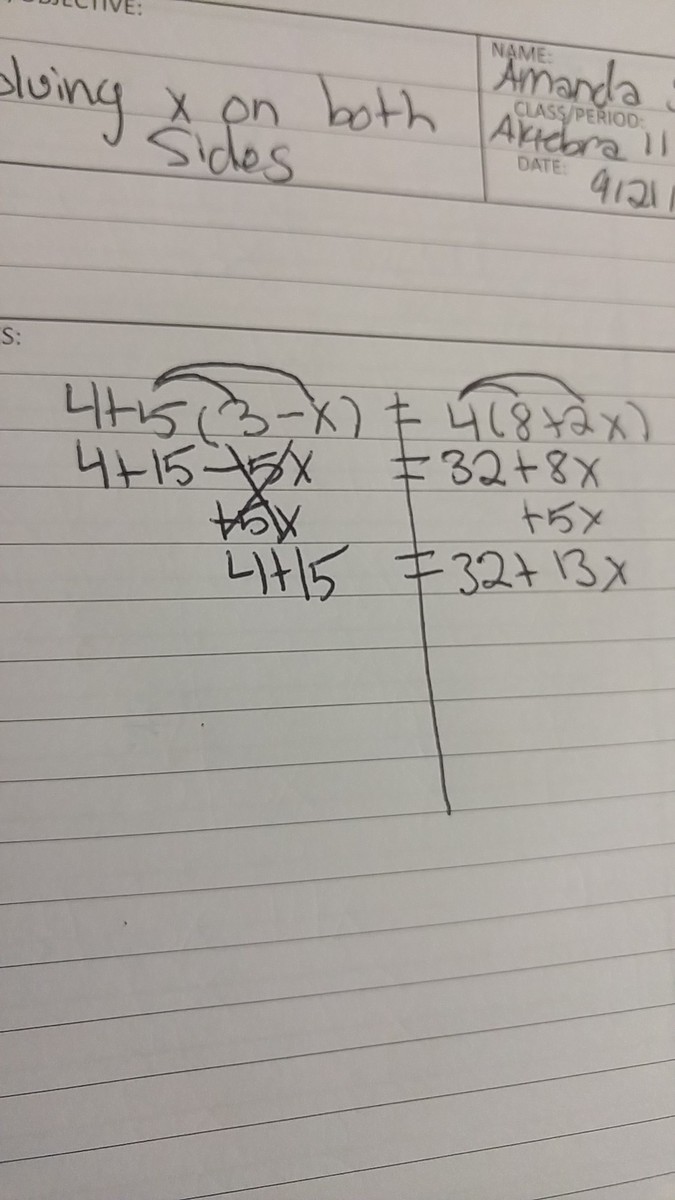 NAME:
Amanda
olving x on both
Sides
CLASS/PERIOD:
Algebra 11
DATE:
9/21/
S:
4+5(3-x) = 4(8+2x)
4+15-5x = 32+8x
+5x +5x
4+15 = 32+13x